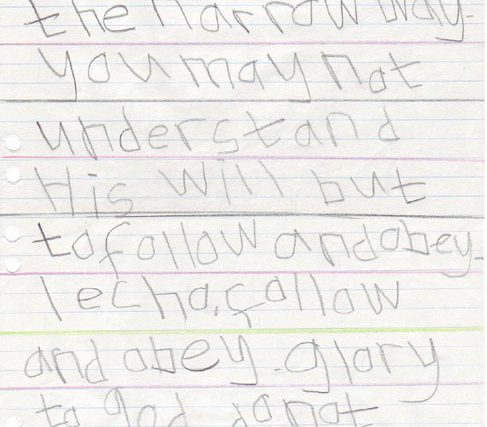 the narrow way.
you may not
understand
His will but
to follow and obey.
lecha, follow
and obey. glory
to god. do not